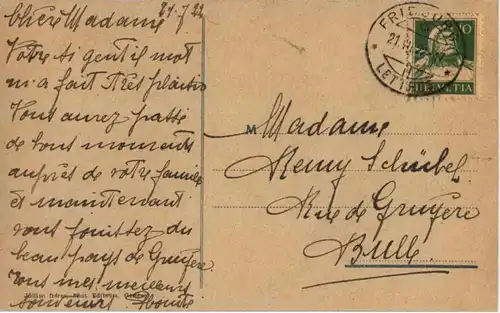 21-7 22
Chère Madame
Votre si gentil mot
m'a fait très plaisir
Vous aurez passé
de bons moments
auprès de votre famille
et maintenant
vous jouissez du
beau pays de Gruyère
Tous mes meilleurs
souvenirs
FRIBOURG
21.VII
LETTRES
10
HELVETIA
M Madame
Remy Schübel
Rue de Gruyère
Bulle